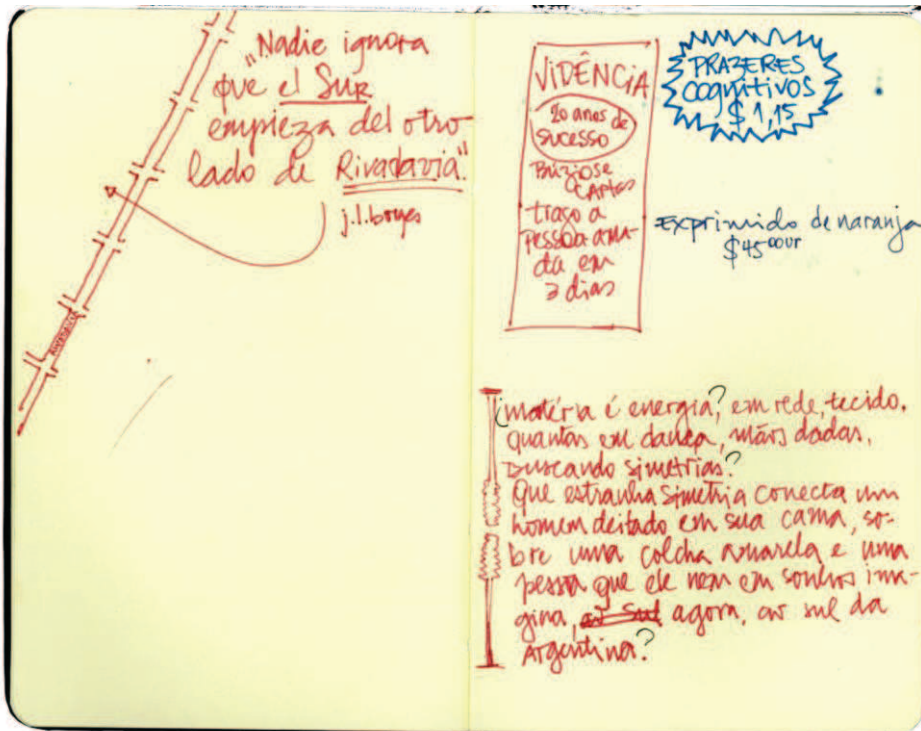 "Nadie ignora
que el Sur
empieza del otro
lado de Rivadavia."
j.l.borges
RIVADAVIA
VIDÊNCIA
20 anos de
sucesso
Búzios e
CARTAS
trago a
pessoa ama-
da em
3 dias
PRAZERES
cognitivos
$ 1,15
Exprimido de naranja
$45
matéria é energia? em rede, tecido,
quantas em dança, mãos dadas,
buscando simetrias?
Que estranha simetria conecta um
homem deitado em sua cama, so-
bre uma colcha amarela e uma
pessoa que ele nem em sonhos ima-
gina, ao sul agora, ao sul da
Argentina?